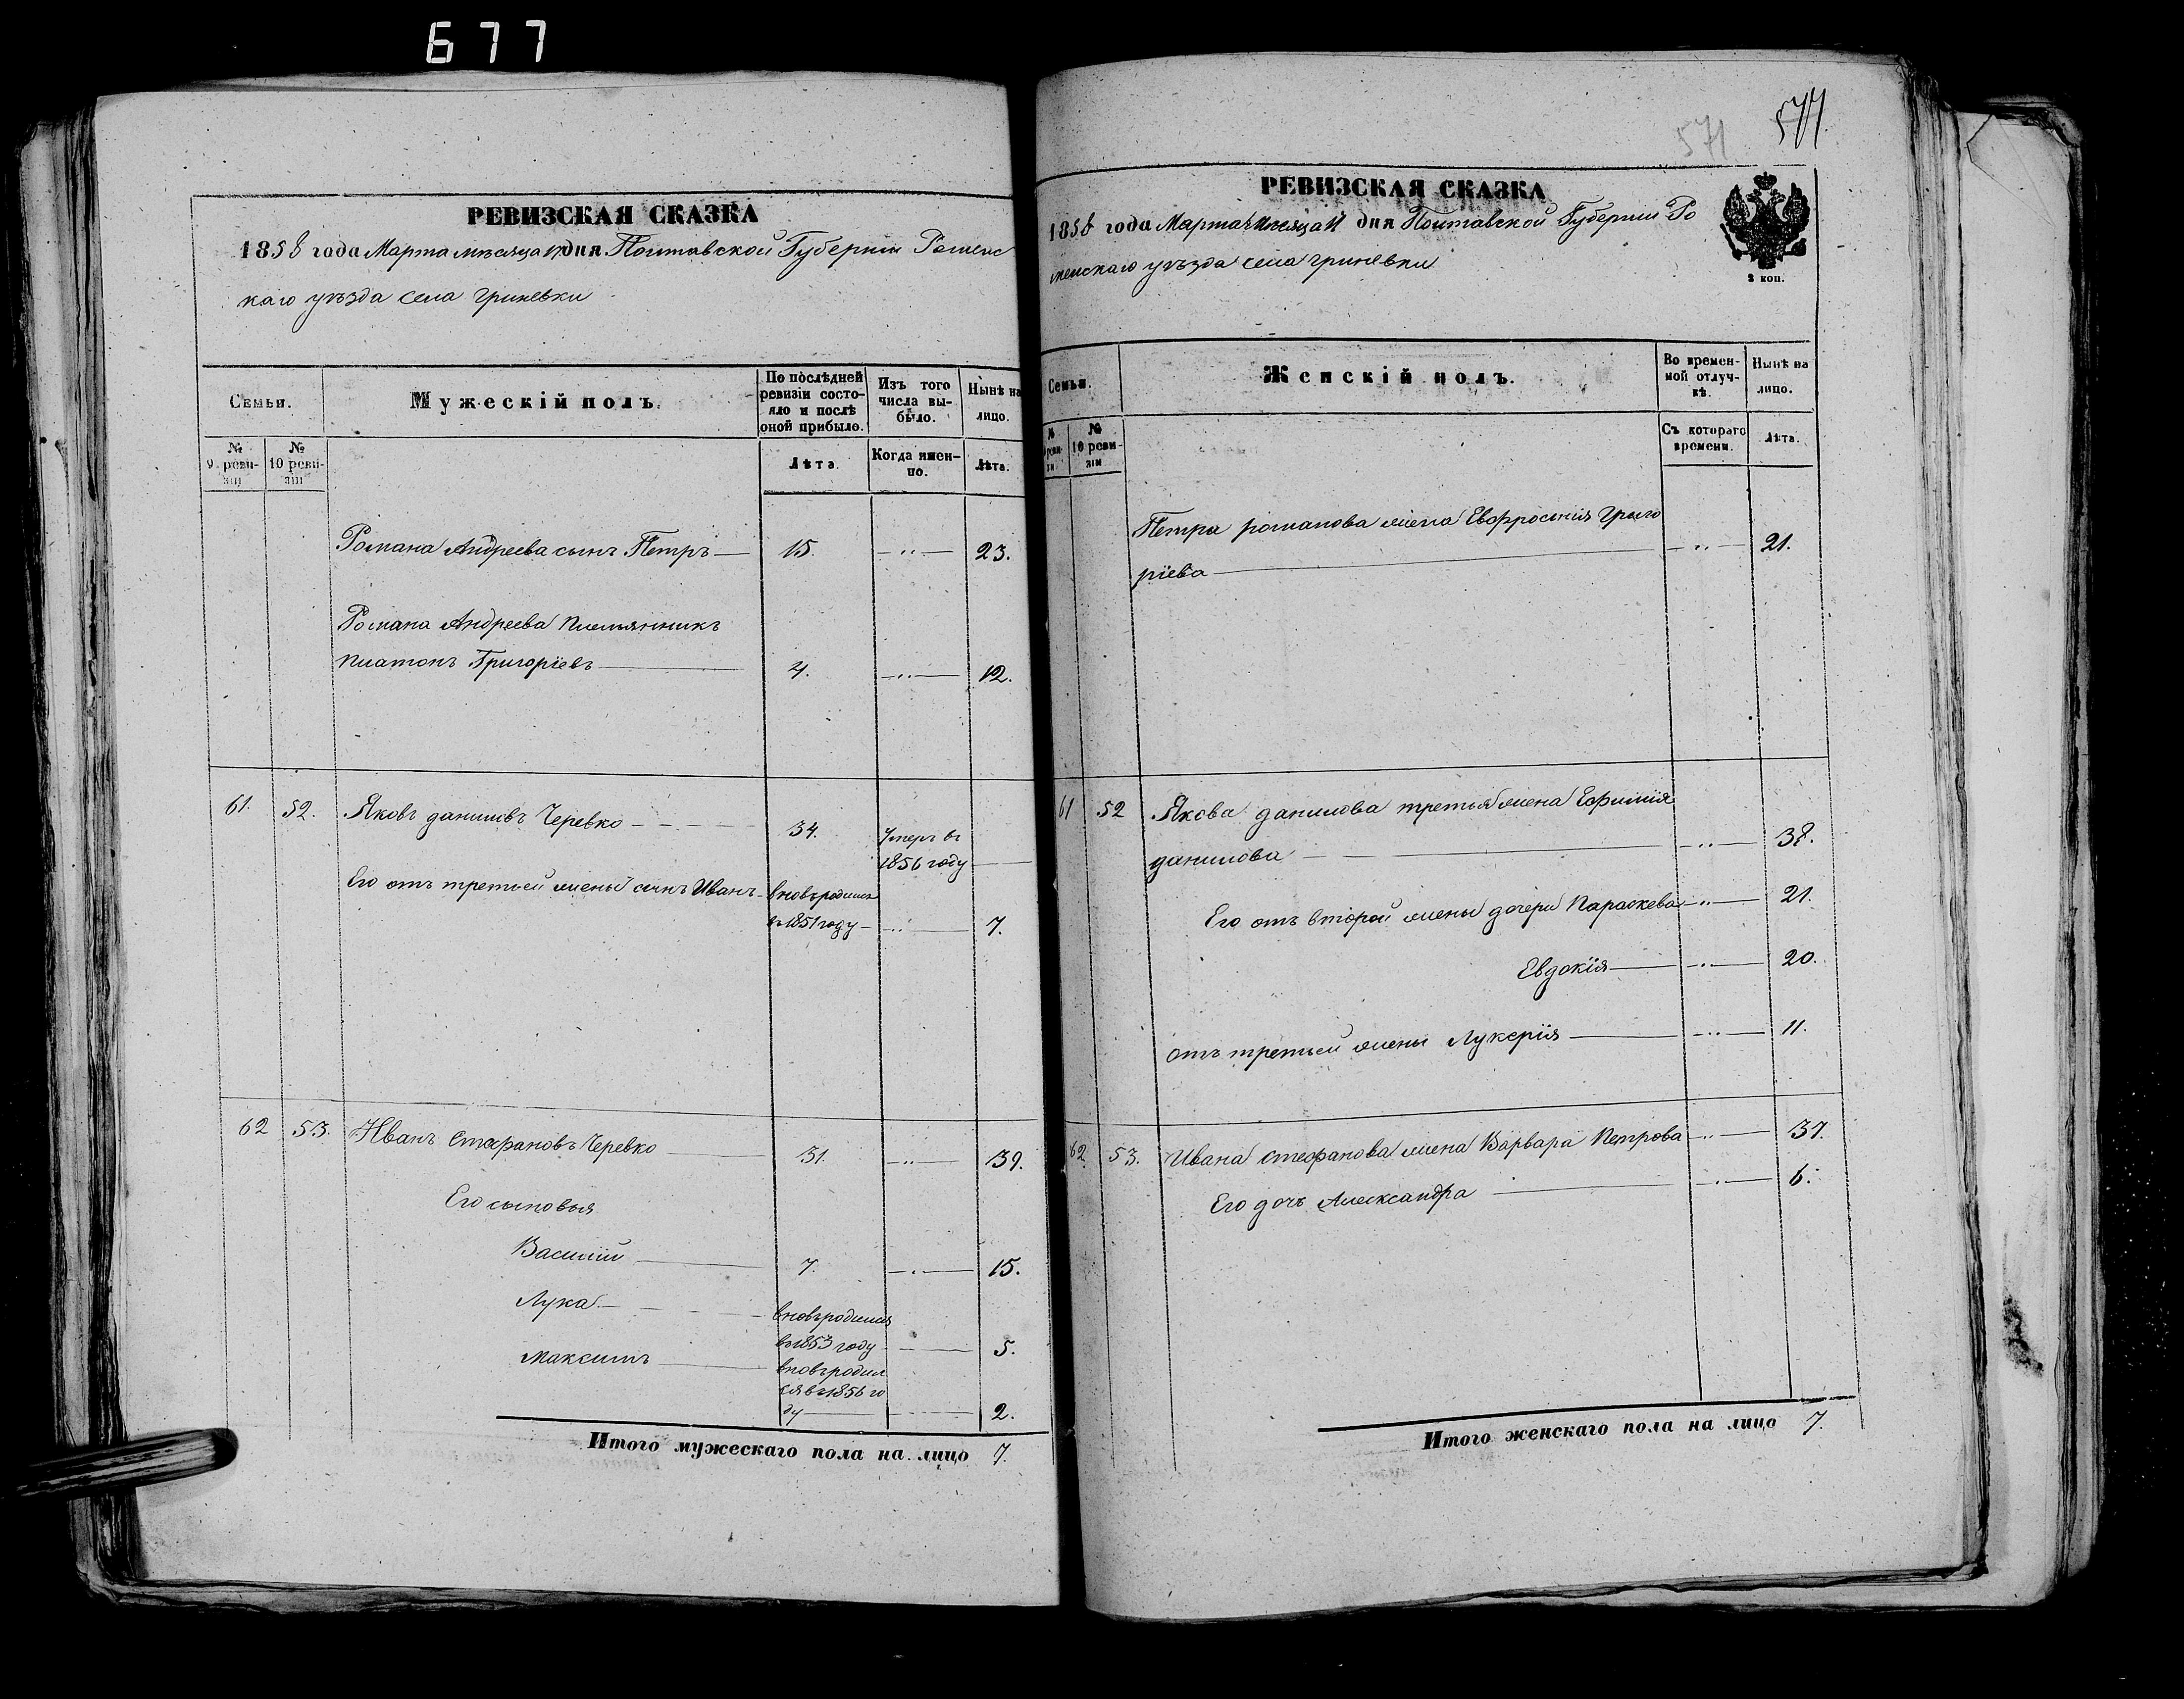 677
РЕВИЗСКАЯ СКАЗКА
1858 года Марта мѣсяца 17 дня Полтавской Губерніи Роменс
каго уѣзда села Гриневки
Семьи.
Мужескій полъ.
По послѣдней ревизіи состо-
яло и послѣ оной прибыло.
Изъ того числа вы-
было.
Нынѣ на лицо.
№ 9 реви-
зіи
№ 10 реви-
зіи
Лѣта.
Когда имен-
но.
Лѣта.
Романа Андреева сынъ Петръ 15. 23.
Романа Андреева племянникъ
Платонъ Григоріевъ 4. 12.
61. 52. Яковъ Даниловъ Черевко 34. Умеръ въ
1856 году
Его отъ третьей жены сынъ Иванъ вновь родился
въ 1851 году 7.
62 53. Иванъ Стефановъ Черевко 31. 39.
Его сыновья
Василій 7. 15.
Лука вновь родился
въ 1853 году 5.
Максимъ вновь родил
ся въ 1856 го
ду 2.
Итого мужескаго пола на лицо 7.
571
РЕВИЗСКАЯ СКАЗКА
1858 года Марта мѣсяца 17 дня Полтавской Губерніи Ро
менскаго уѣзда села Гриневки
2 коп.
Семьи.
Женскій полъ.
Во времен-
ной отлуч-
кѣ.
Нынѣ на лицо.
№ реви-
зіи
№ 10 реви-
зіи
Съ котораго времени.
Лѣта.
Петра Романова жена Евфросинія Григо
ріева 21.
61 52 Якова Данилова третья жена Ефимія
Данилова 38.
Его отъ второй жены дочери Параскева 21.
Евдокія 20.
отъ третьей жены Лукерія 11.
62. 53. Ивана Стефанова жена Варвара Петрова 37.
Его дочь Александра 6.
Итого женскаго пола на лицо 7.